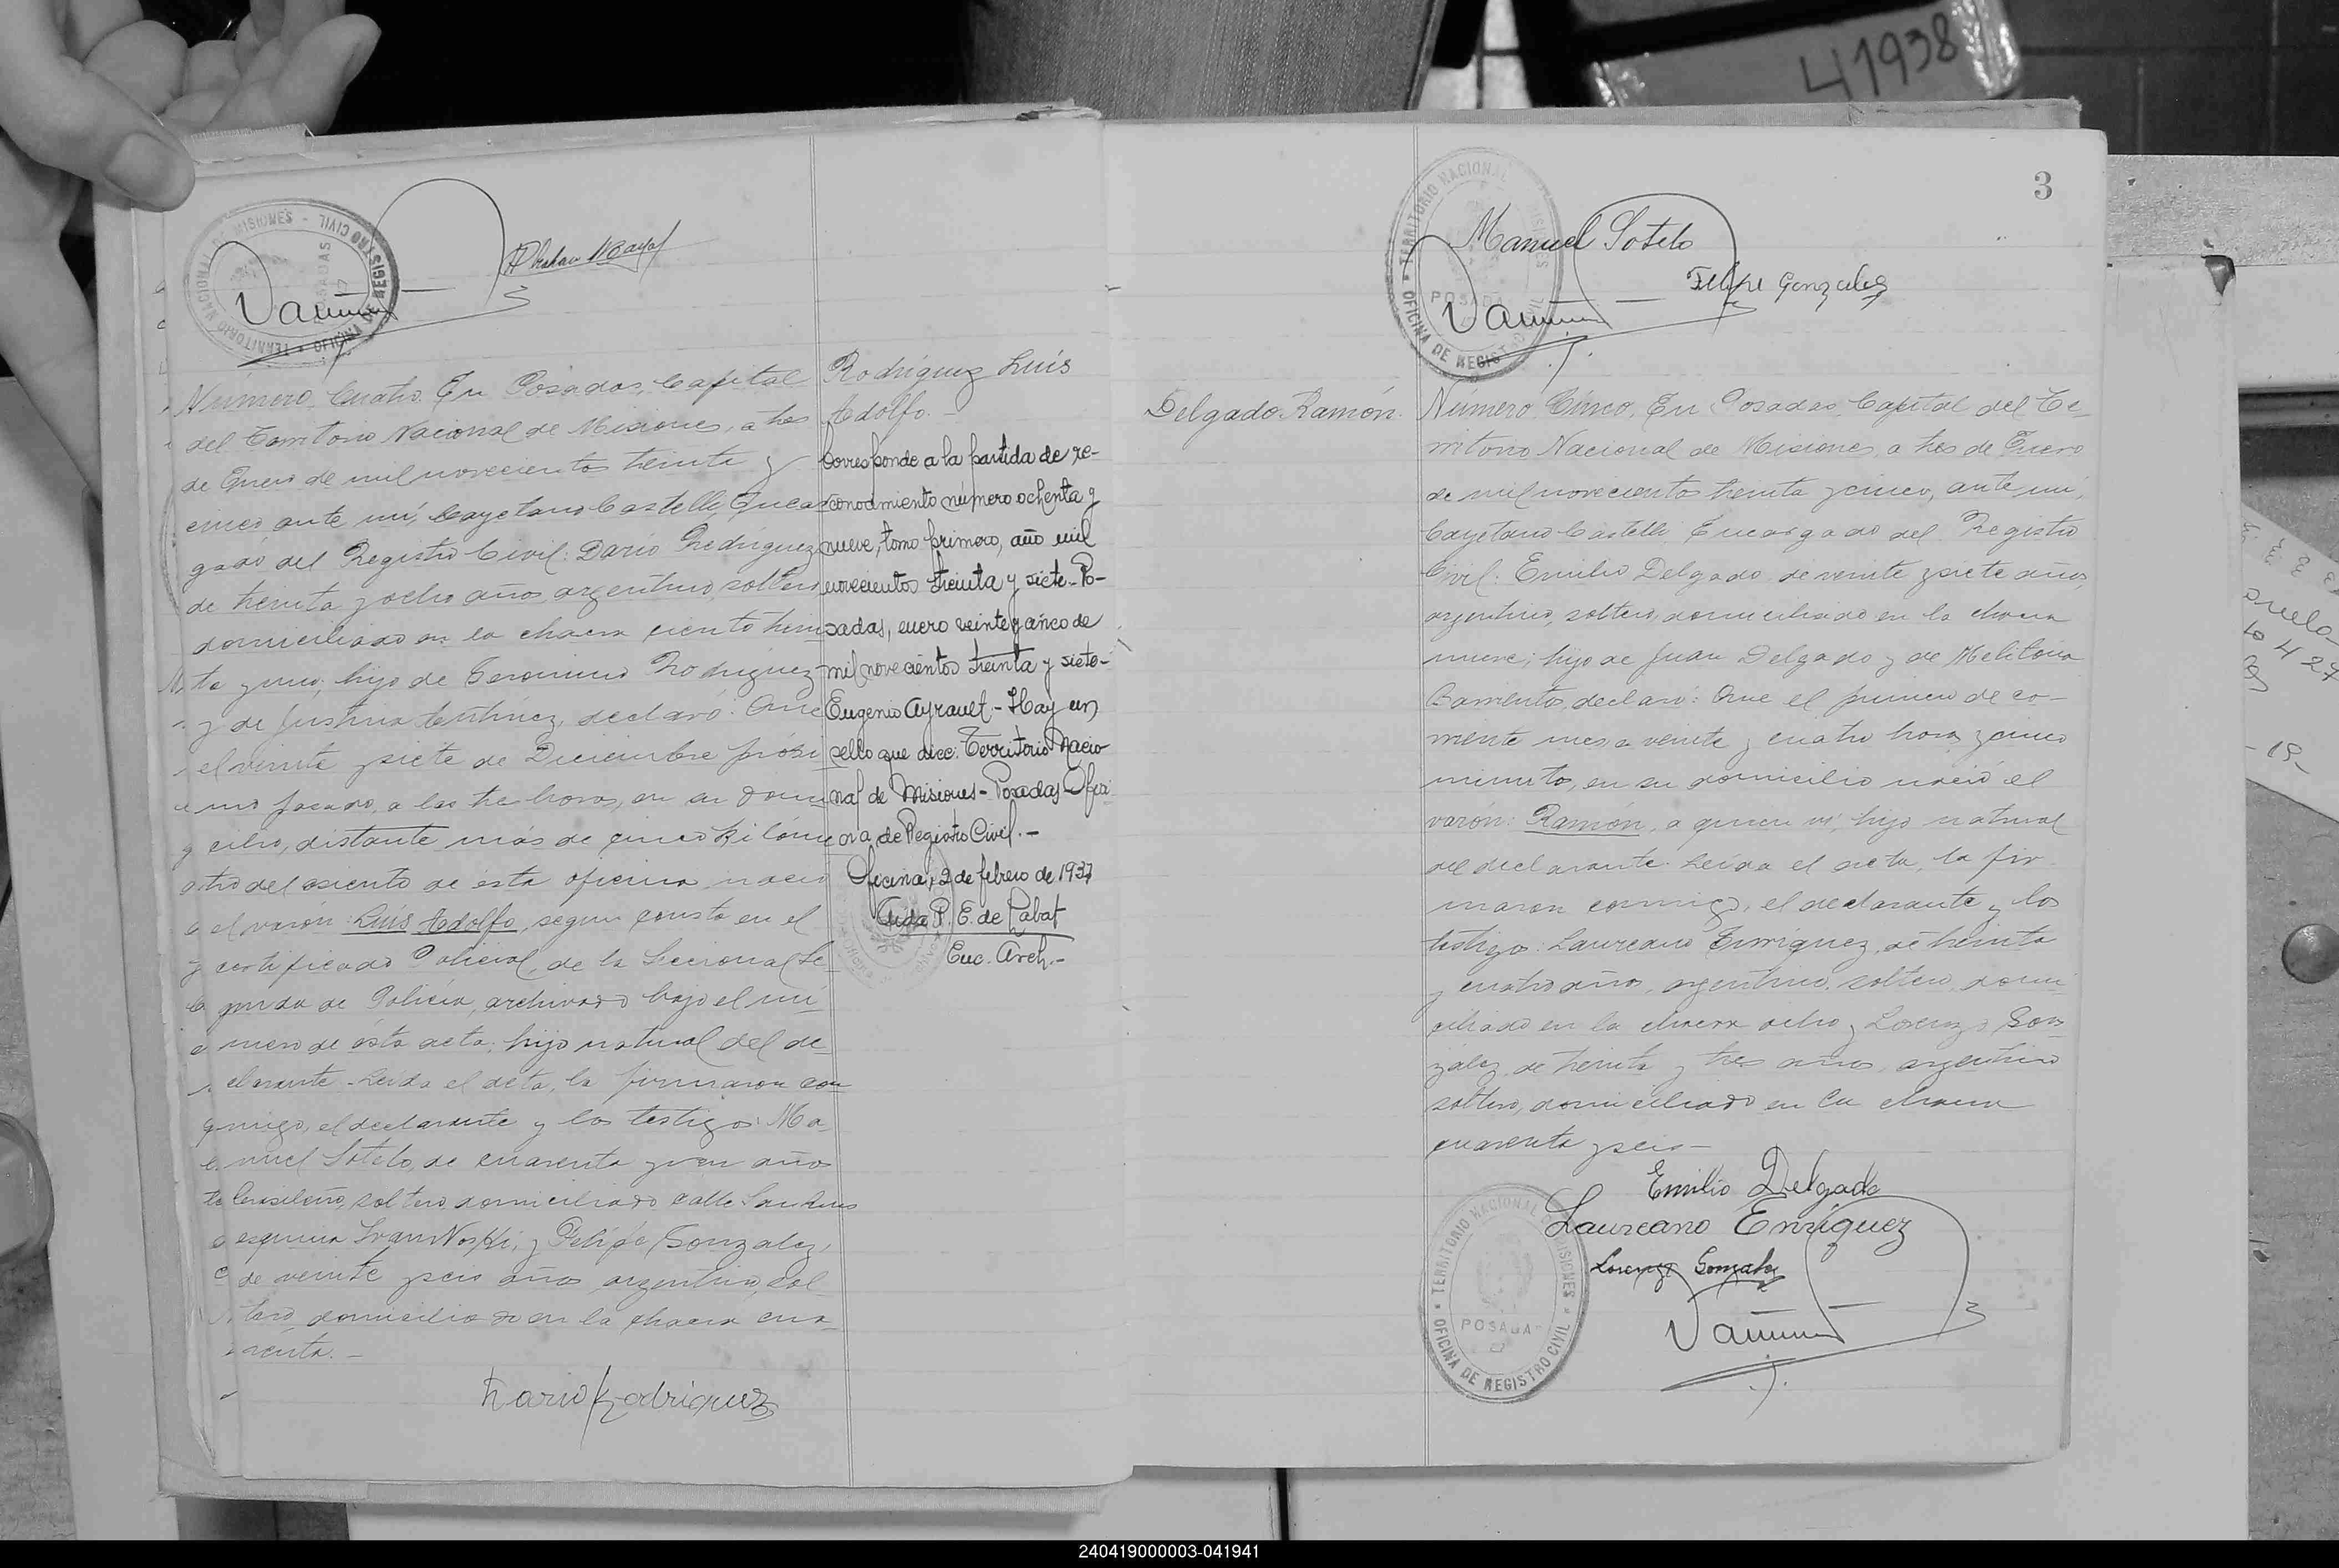 41938
Abrahan Maya
TERRITORIO NACIONAL DE MISIONES - OFICINA DE REGISTRO CIVIL
POSADAS
Número Cuatro. En Posadas, Capital
del Territorio Nacional de Misiones, a tres
de Enero de mil novecientos treinta y
cinco ante mí, Cayetano Castelli, Encar
gado del Registro Civil: Dario Rodriguez
de treinta y ocho años, argentino, soltero
domiciliado en la chacra ciento trein
ta y uno; hijo de Geronimo Rodriguez
y de Justina, declaró: Que
el veinte y siete de Diciembre próxi
mo pasado, a las tres horas, en su domi
cilio, distante más de cinco kilóme
tro del asiento de ésta oficina nació
el varón: Luis Adolfo, segun consta en el
certificado Policial, de la Seccional Se
gunda de Policía, archivado bajo el nú
mero de ésta acta; hijo natural del de
clarante. Leída el acta, la firmaron con
migo, el declarante y los testigos: Ma
nuel Sotelo, de cuarenta y un años
brasileño, soltero domiciliado calle San Luis
esquina, y Felipe Gonzalez,
de veinte y seis años, argentino, sol
tero, domiciliado en la chacra cua
renta. -
Dario Rodriguez
Rodríguez Luis
Adolfo. -
Corresponde a la partida de re-
conocimiento número ochenta y
nueve, tomo primero, año mil
novecientos treinta y siete- Po-
sadas, enero veinte y cinco de
mil novecientos treinta y siete-
Eugenio Ayrault.- Hay un
sello que dice: Territorio Nacio
nal de Misiones- Posadas- Ofici
na de Registro Civil.-
Oficina, 2 de febrero de 1937
Aida P. E. de Labat
Enc. Arch.-
3
TERRITORIO NACIONAL DE MISIONES OFICINA DE REGISTRO CIVIL
POSADAS
Manuel Sotelo
Felipe Gonzalez
Delgado Ramón.
Número Cinco. En Posadas, Capital del Te-
rritorio Nacional de Misiones, a tres de Enero
de mil novecientos treinta y cinco, ante mí,
Cayetano Castelli Encargado del Registro
Civil: Emilio Delgado, de veinte y siete años
argentino, soltero, domiciliado en la chacra
nueve; hijo de Juan Delgado y de Melitona
Barrientos, declaró: Que el primero de co-
rriente mes a veinte y cuatro horas y cinco
minutos, en su domicilio nació el
varón: Ramón, a quien vi, hijo natural
del declarante. Leída el acta, la fir
maron conmigo, el declarante y los
testigos: Laureano Enriquez, de treinta
y cuatro años, argentino, soltero, domi
ciliado en la chacra ocho y Lorenzo Gon
zález, de treinta y tres años, argentino
soltero, domiciliado en la chacra
cuarenta y seis-
Emilio Delgado
Laureano Enriquez
Lorenzo Gonzalez
TERRITORIO NACIONAL DE MISIONES OFICINA DE REGISTRO CIVIL
POSADAS
240419000003-041941